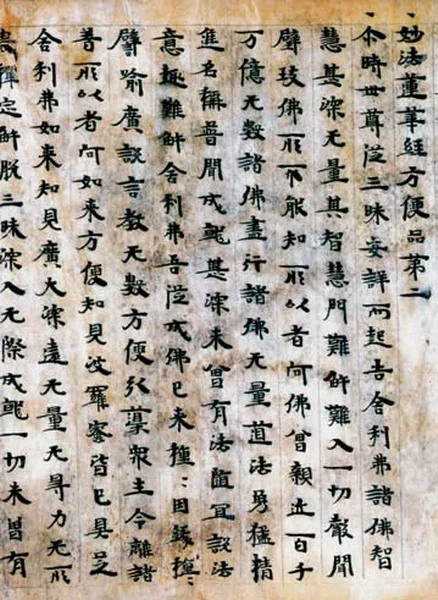 妙法蓮華經方便品第二
尒時世尊從三昧安詳而起告舍利弗諸佛智
慧甚深无量其智慧門難解難入一切聲聞
辟支佛所不能知所以者何佛曾親近百千
万億无數諸佛盡行諸佛无量道法勇猛精
進名稱普聞成就甚深未曾有法隨宜說法
意趣難解舍利弗吾從成佛已來種〻因緣種〻
譬喻廣說言教无數方便引導衆生令離諸
著所以者何如來方便知見波羅蜜皆已具足
舍利弗如來知見廣大深遠无量无㝵力无所
畏禪定解脫三昧深入无際成就一切未曾有